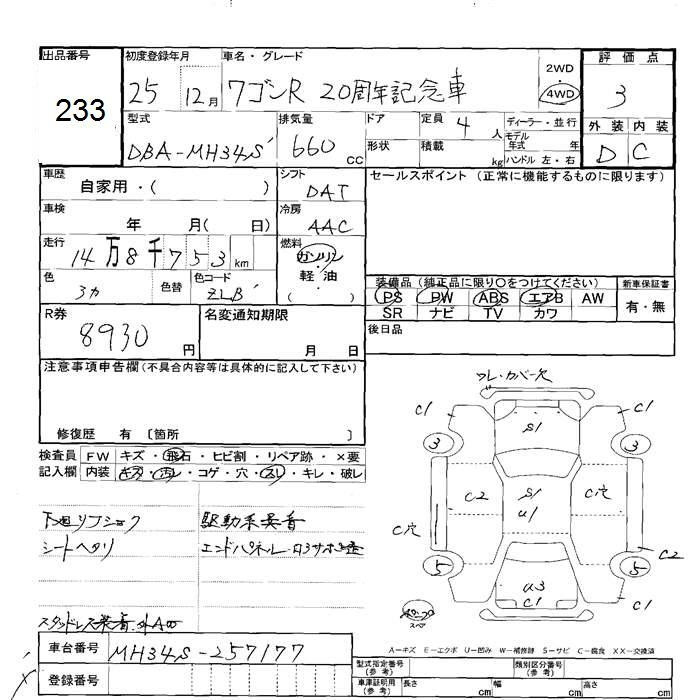 出品番号
233
初度登録年月
25 12月
車名・グレード
ワゴンR 20周年記念車
2WD
4WD
評価点
3
外装 内装
D C
型式
DBA-MH34S
排気量
660 CC
ドア
形状
定員 4 人
積載 kg
ディーラー・並行
モデル年式 年
ハンドル 左・右
車歴
自家用・( )
シフト
DAT
セールスポイント (正常に機能するものに限ります)
車検
年 月( 日)
冷房
AAC
走行
14万8千753km
燃料
ガソリン
軽油
( )
色
シカ
色替
色コード
ZLB
装備品 (純正品に限り○をつけてください)
PS PW ABS エアB AW
SR ナビ TV カワ
新車保証書
有・無
R券
8930円
名変通知期限
月 日
後日品
注意事項申告欄 (不具合内容等は具体的に記入して下さい)
修復歴 有 〔箇所 〕
検査員記入欄
FW キズ・飛石・ヒビ割・リペア跡・×要
内装 キズ・汚レ・コゲ・穴・スレ・キレ・破レ
駆動系異音
シートヘタリ
エンドパネル
フレ・カバー欠
C1
C1
S1
3
3
C2
S1
U1
C穴
C穴
C2
5
5
U3
C1
スペア
A-キズ E-エクボ U-凹み W-補修跡 S-サビ C-腐食 XX-交換済
車台番号
MH34S-257177
登録番号
型式指定番号 (参考)
類別区分番号 (参考)
車庫証明用 (参考)
長さ cm
幅 cm
高さ cm